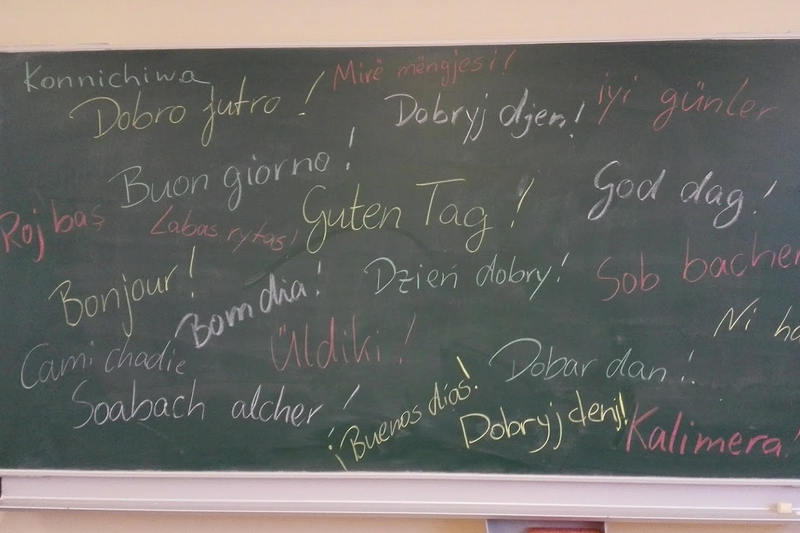 Konnichiwa
Mirë mëngjesi!
Dobro jutro!
Dobryj djen!
iyi günler
Buon giorno!
God dag!
Roj baş
Labas rytas!
Guten Tag!
Bonjour!
Bom dia!
Dzień dobry!
Sob bacher
Ni ha
Cami chadie
Üldiki!
Dobar dan!
Soabach alcher!
¡Buenos días!
Dobryj denj!
Kalimera!